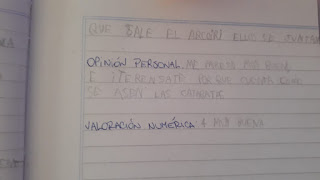 QUE SALE EL ARCOIRI ELLOS SE
OPINIÓN PERSONAL ME PARECIO MUI BUENO
I ITERENSATE POR QUE CUENTA COMO
SE ASEN LAS
VALORACIÓN NUMÉRICA 4 MUI BUENA